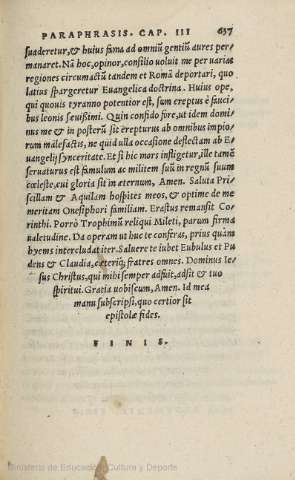 PARAPHRASIS. CAP. III 637
suaderetur, & huius fama ad omniũ gentiũ aures per-
manaret. Nã hoc, opinor, consilio uoluit me per uarias
regiones circumactũ tandem et Romã deportari, quo
latius spargeretur Euangelica doctrina. Huius ope,
qui quouis tyranno potentior est, sum creptus è fauci-
bus leonis sæuissimi. Quin confido fore, ut idem domi-
nus me & in posterũ sit erepturus ab omnibus impio-
rum malefactis, ne quid ulla occasione deflectam ab E-
uangelij synceritate. Et si hic mors infligetur, ille tamẽ
seruaturus est famulum ac militem suũ in regnũ suum
cœleste, cui gloria sit in eternum, Amen. Saluta Pri-
scillam & Aquilam hospites meos, & optime de me
meritam Onesiphori familiam. Erastus remansit Co-
rinthi. Porrò Trophimũ reliqui Mileti, parum firma
ualetudine. Da operam ut huc te conferas, prius quàm
hyems intercludat iter. Saluere te iubet Eubulus et Pu
dens & Claudia, cæteriq; fratres omnes. Dominus Ie-
sus Christus, qui mihi semper adfuit, adsit & tuo
spiritui. Gratia uobiscum, Amen. Id mea
manu subscripsi, quo certior sit
epistolæ fides.
FINIS.
Ministerio de Educación, Cultura y Deporte